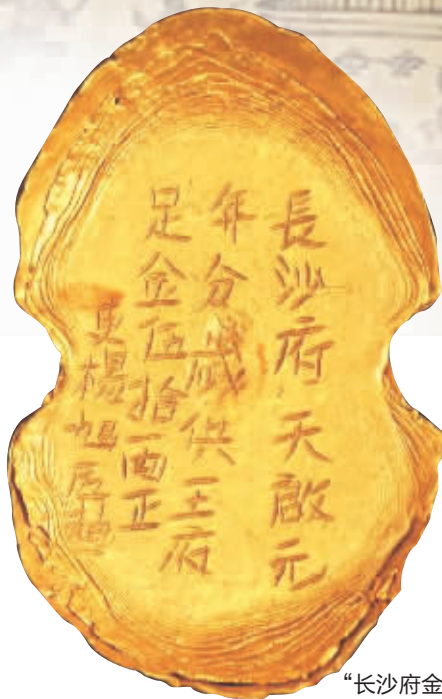 長沙府天啟元
年分歲供王府
足金伍拾兩正
吏楊旭匠
“长沙府金